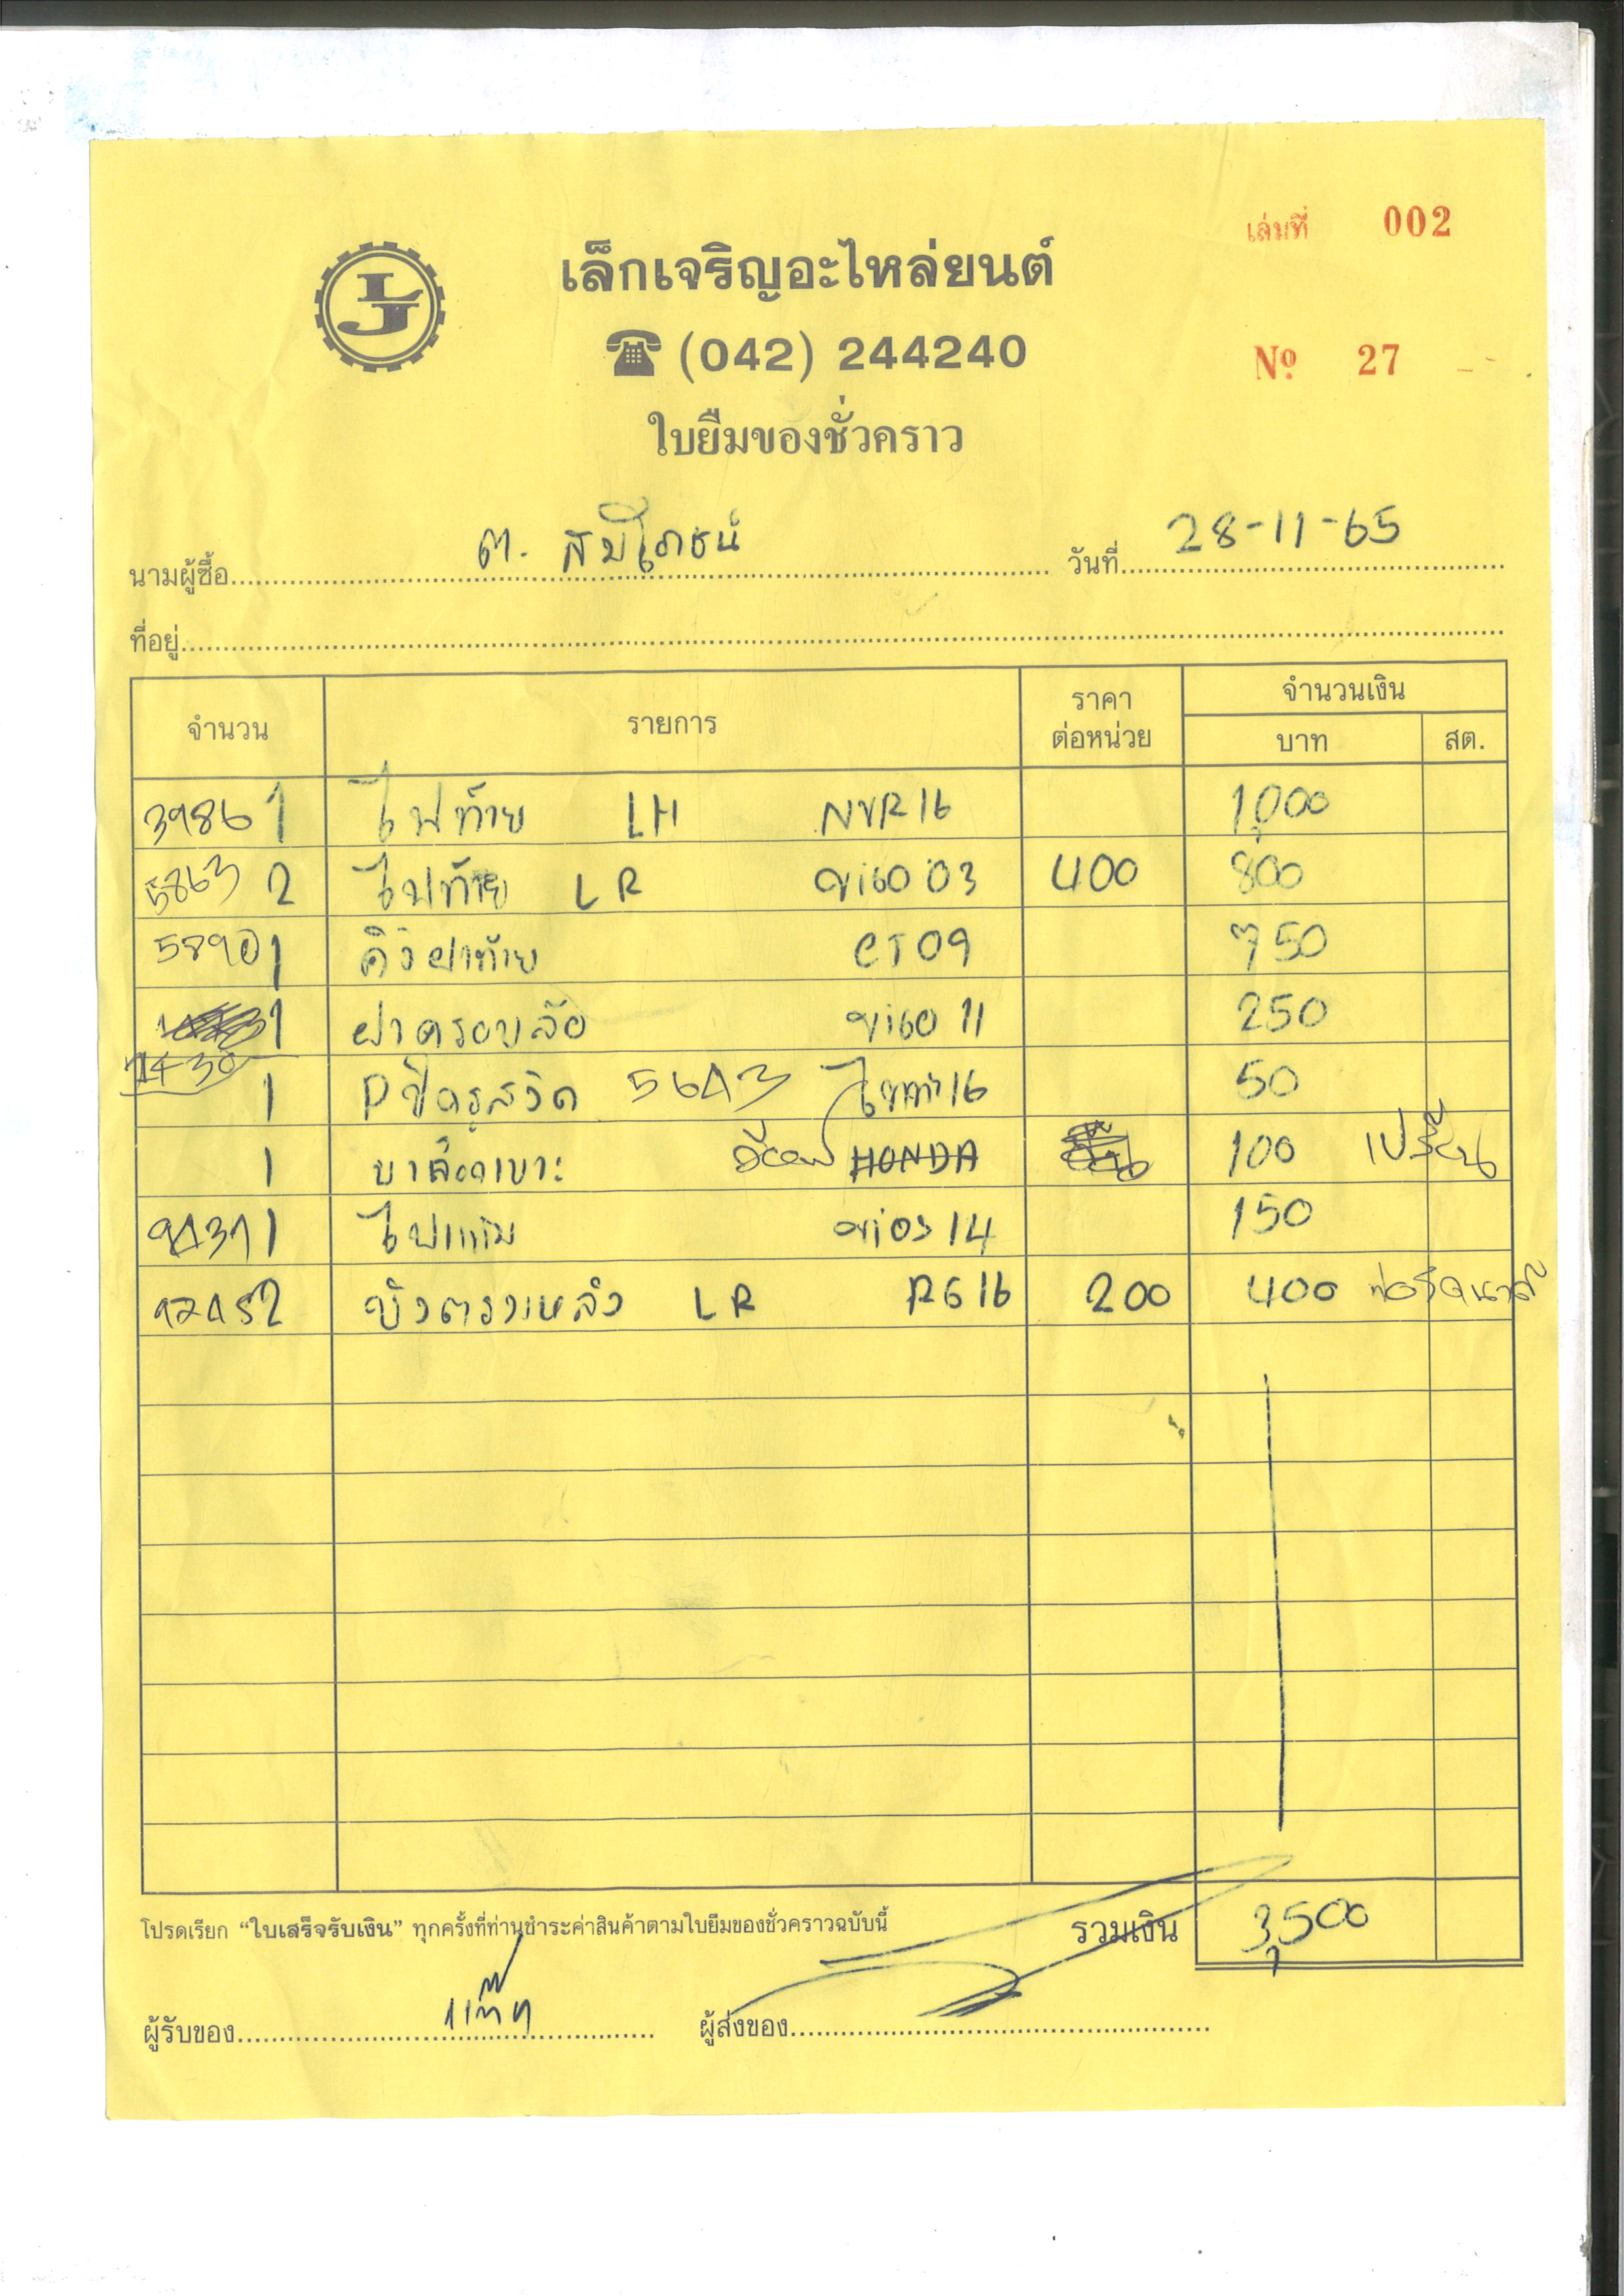 เล่มที่ 002
LJ
เล็กเจริญอะไหล่ยนต์
☎ (042) 244240
Nº 27
ใบยืมของชั่วคราว
นามผู้ซื้อ ต. สัมโภชน์ วันที่ 28-11-65
ที่อยู่
จำนวน รายการ ราคาต่อหน่วย จำนวนเงิน
บาท สต.
3986 1 ไฟท้าย LH NVR16 1,000
5863 2 ไฟท้าย LR vigo 03 400 800
5890 1 คิ้วฝาท้าย CT09 750
1 ฝาครอบล้อ vigo 11 250
1430
1 5643 16 50
1 HONDA 100
1 ไฟแก้ม vios 14 150
2 LR RG16 200 400
โปรดเรียก “ใบเสร็จรับเงิน” ทุกครั้งที่ท่านชำระค่าสินค้าตามใบยืมของชั่วคราวฉบับนี้ รวมเงิน 3,500
ผู้รับของ ผู้ส่งของ